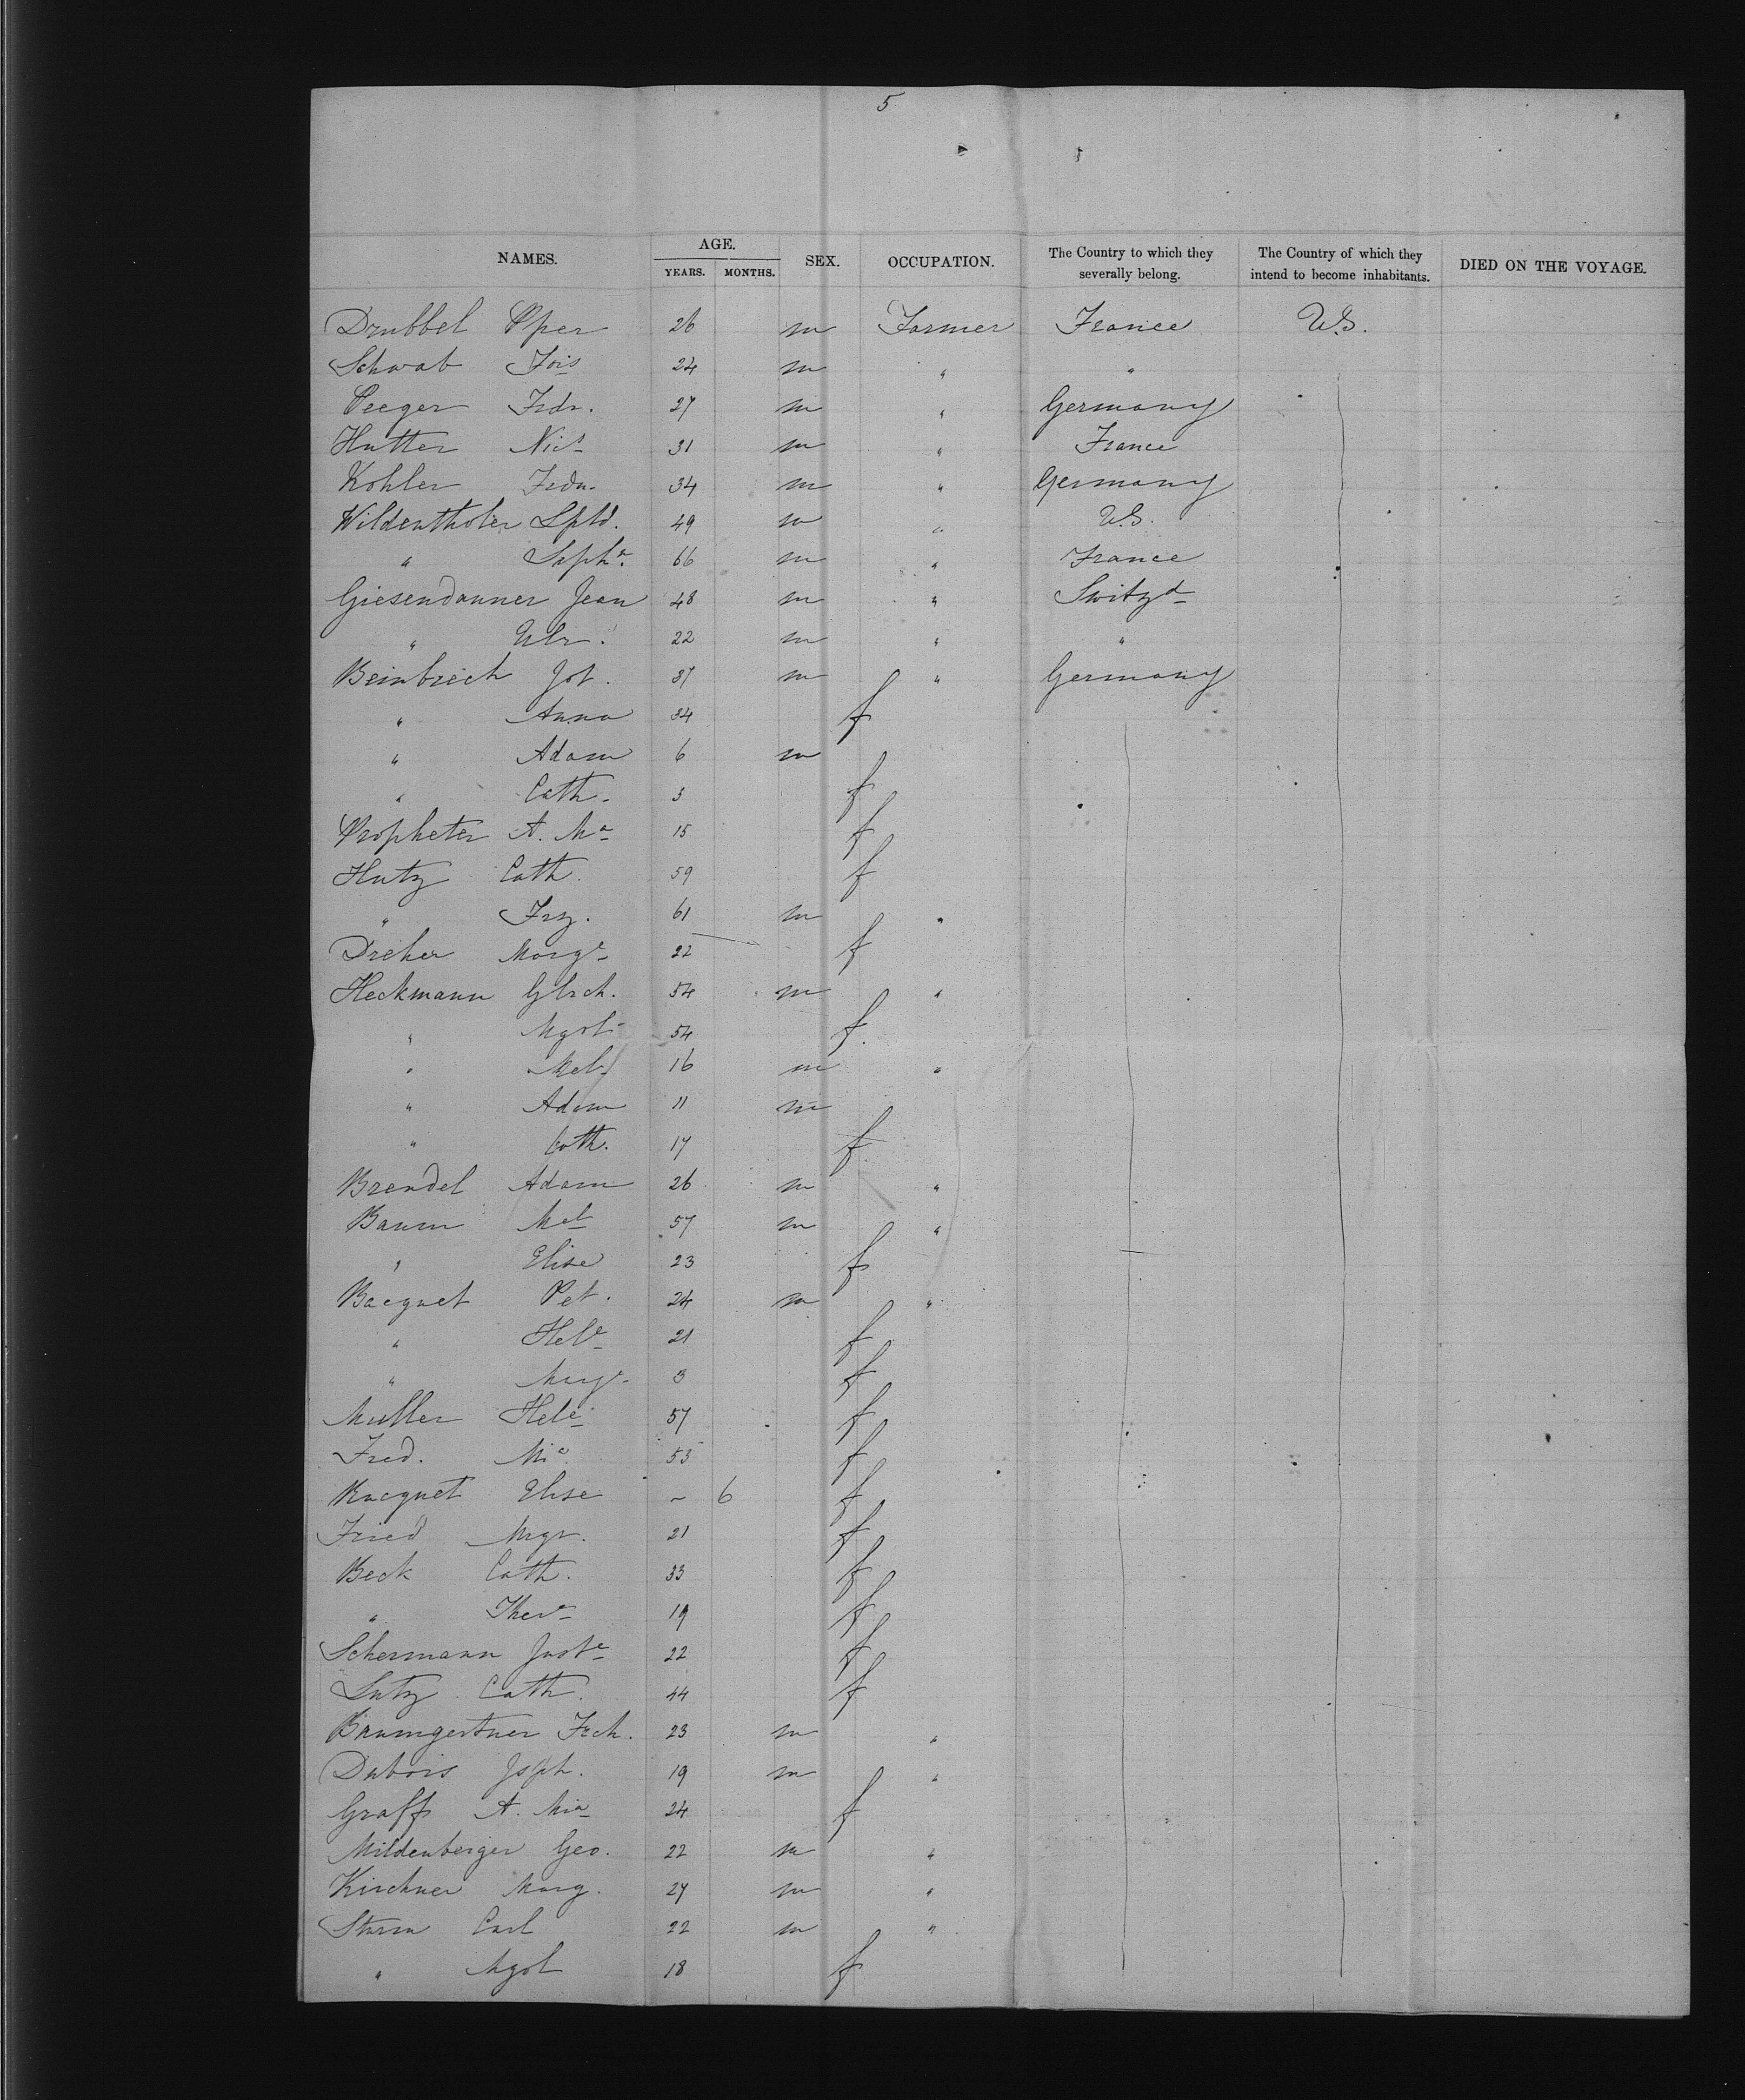 5
NAMES. AGE. YEARS. MONTHS. SEX. OCCUPATION. The Country to which they severally belong. The Country of which they intend to become inhabitants. DIED ON THE VOYAGE.
Drubbel Pper 26 m Farmer France U.S.
Schwab Frçis 24 m " "
Peeger Frdr. 27 m " Germany
Hutter Nics 31 m " France
Kohler Fedr. 34 m " Germany
Wildenthaler Lpld. 49 m " U.S.
" Sepha. 66 m " France
Giesendanner Jean 48 m " Switzd
" Ulr. 22 m " "
Beinbrech Jos. 37 m " Germany
" Anna 34 f
" Adam 6 m
" Cath. 3 f
Propheter A. Ma 15 f
Hutz Cath. 59 f
" Frz. 61 m "
Dreher Marge 22 f
Heckmann Glsch. 54 m "
" Mgrt 54 f
" Mel 16 m "
" Adam 11 m
" Cath. 17 f
Brendel Adam 26 m "
Baum Mel 57 m "
" Elise 23 f
Bacquet Pet. 24 m "
" Hele 21 f
" Marge 3 f
Muller Hele 57 f
Fred. Mia 53 f
Bacquet Elise ~ 6 f
Fried Mrgr. 21 f
Beck Cath. 33 f
" There 19 f
Schermann Juste 22 f
Lutz Cath. 44 f
Baumgertner Fch. 23 m "
Dubois Jsph. 19 m "
Graff A. Mia 24 f
Mildenberger Geo. 22 m "
Kirchner Marg. 27 m "
Sturm Carl 22 m "
" Mgrt 18 f